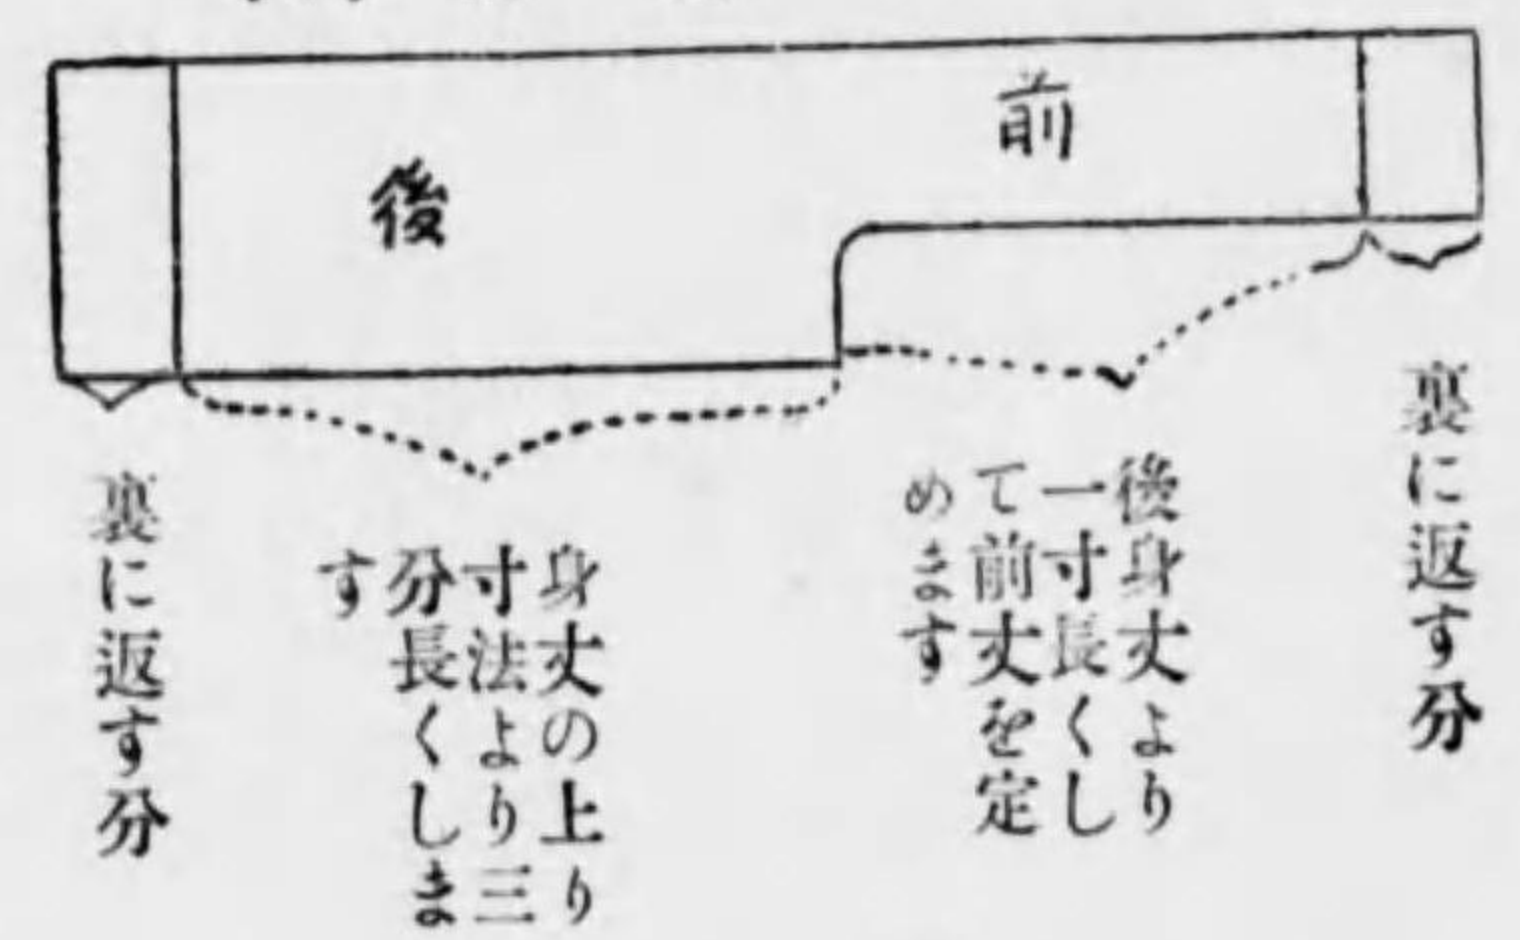 前
後
裏に返す分
後身丈より
一寸長くし
て前丈を定
めます
身丈の上り
寸法より三
分長くしま
す
裏に返す分